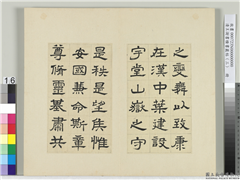 之變舞以致康
在漢中葉建設
宇堂山嶽之守
是秩是望侯惟
安國兼命斯章
尊脩靈基肅共
16